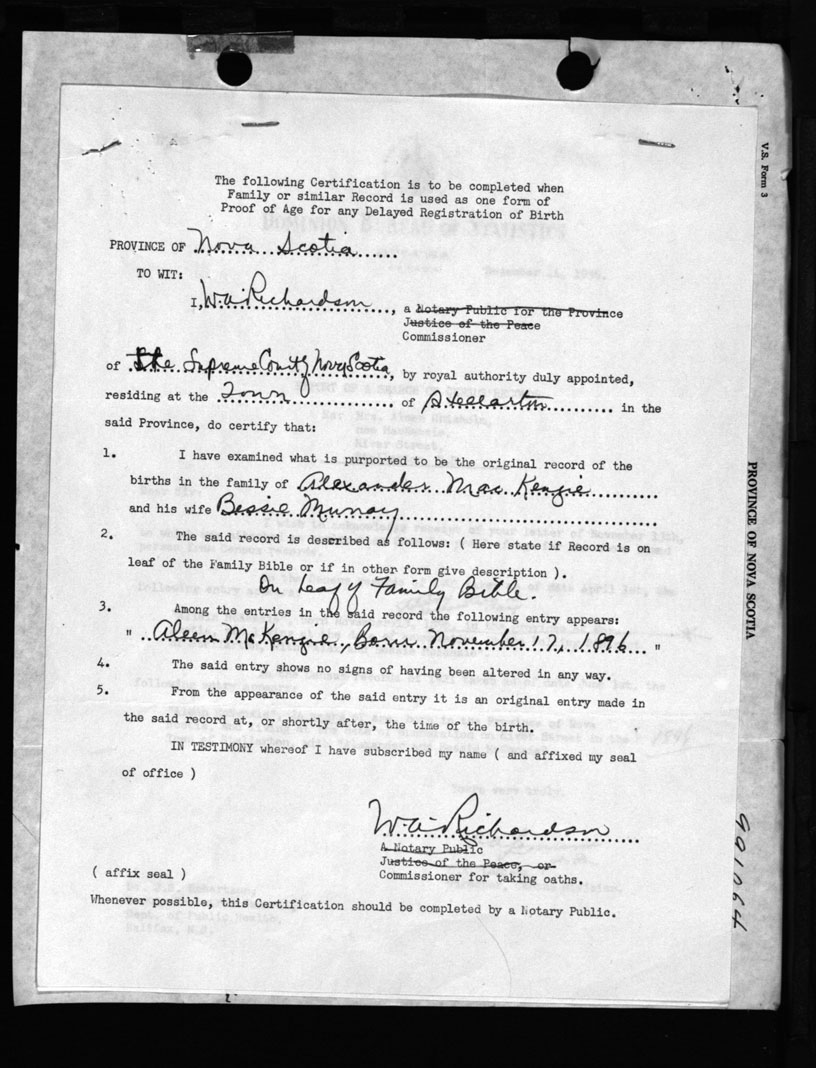 The following Certification is to be completed when
Family or similar Record is used as one form of
Proof of Age for any Delayed Registration of Birth
PROVINCE OF Nova Scotia
TO WIT:
I, W.A. Richardson, a Notary Public for the Province
Justice of the Peace
Commissioner
of the Supreme Court of Nova Scotia, by royal authority duly appointed,
residing at the Town of Stellarton in the
said Province, do certify that:
1. I have examined what is purported to be the original record of the
births in the family of Alexander MacKenzie
and his wife Bessie Murray
2. The said record is described as follows: ( Here state if Record is on
leaf of the Family Bible or if in other form give description ).
On Leaf of Family Bible.
3. Among the entries in the said record the following entry appears:
" Aleen McKenzie, Born November 17, 1896 "
4. The said entry shows no signs of having been altered in any way.
5. From the appearance of the said entry it is an original entry made in
the said record at, or shortly after, the time of the birth.
IN TESTIMONY whereof I have subscribed my name ( and affixed my seal
of office )
W.A. Richardson
A Notary Public
Justice of the Peace, or
( affix seal ) Commissioner for taking oaths.
Whenever possible, this Certification should be completed by a Notary Public.
V.S. Form 3
PROVINCE OF NOVA SCOTIA
901064